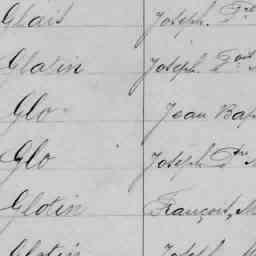 Glais Joseph.
Glatin Joseph.
Glo Jean Bap
Glo Joseph
Glotin François, M
Glotin Joseph M